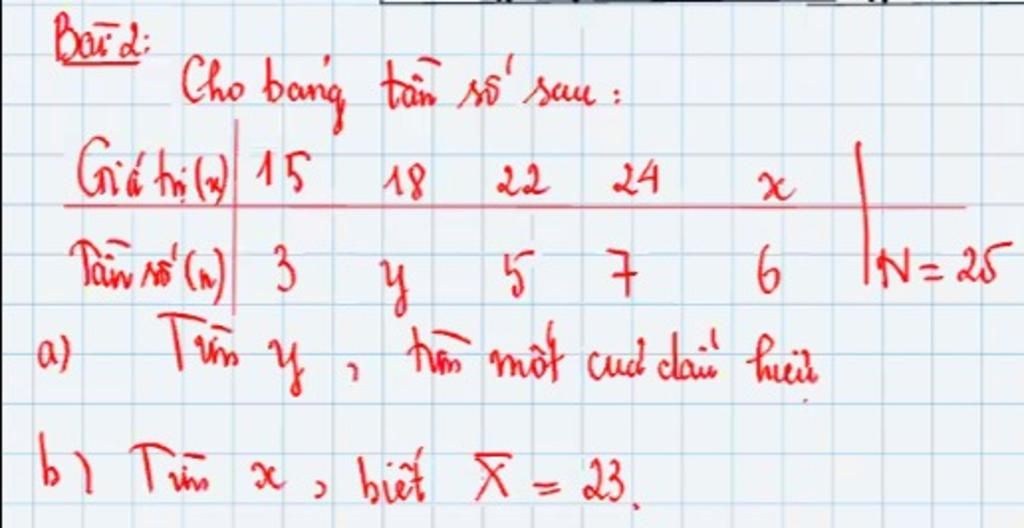 Bài 2:
Cho bảng tần số sau:
Giá trị (x) 15 18 22 24 x
Tần số (n) 3 y 5 7 6 N = 25
a) Tìm y, tìm mốt của dấu hiệu
b) Tìm x, biết X̅ = 23.